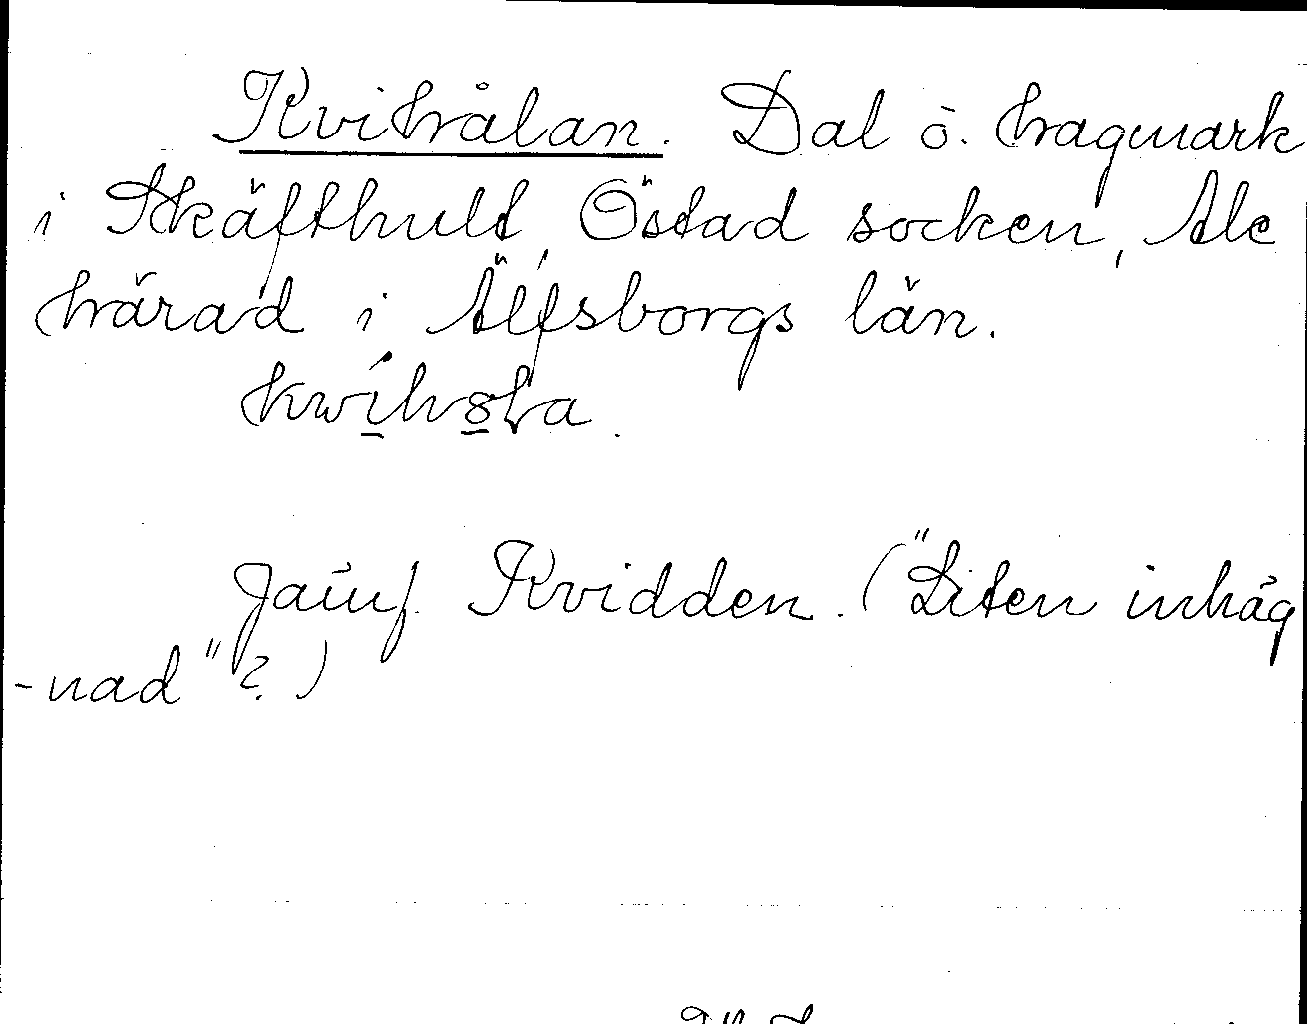 Kvihålan. Dal o. hagmark
i Skäfthult, Östad socken, Ale
härad i Älfsborgs län.
Jämf. Kvidden. ("Liten inhäg
-nad"?)